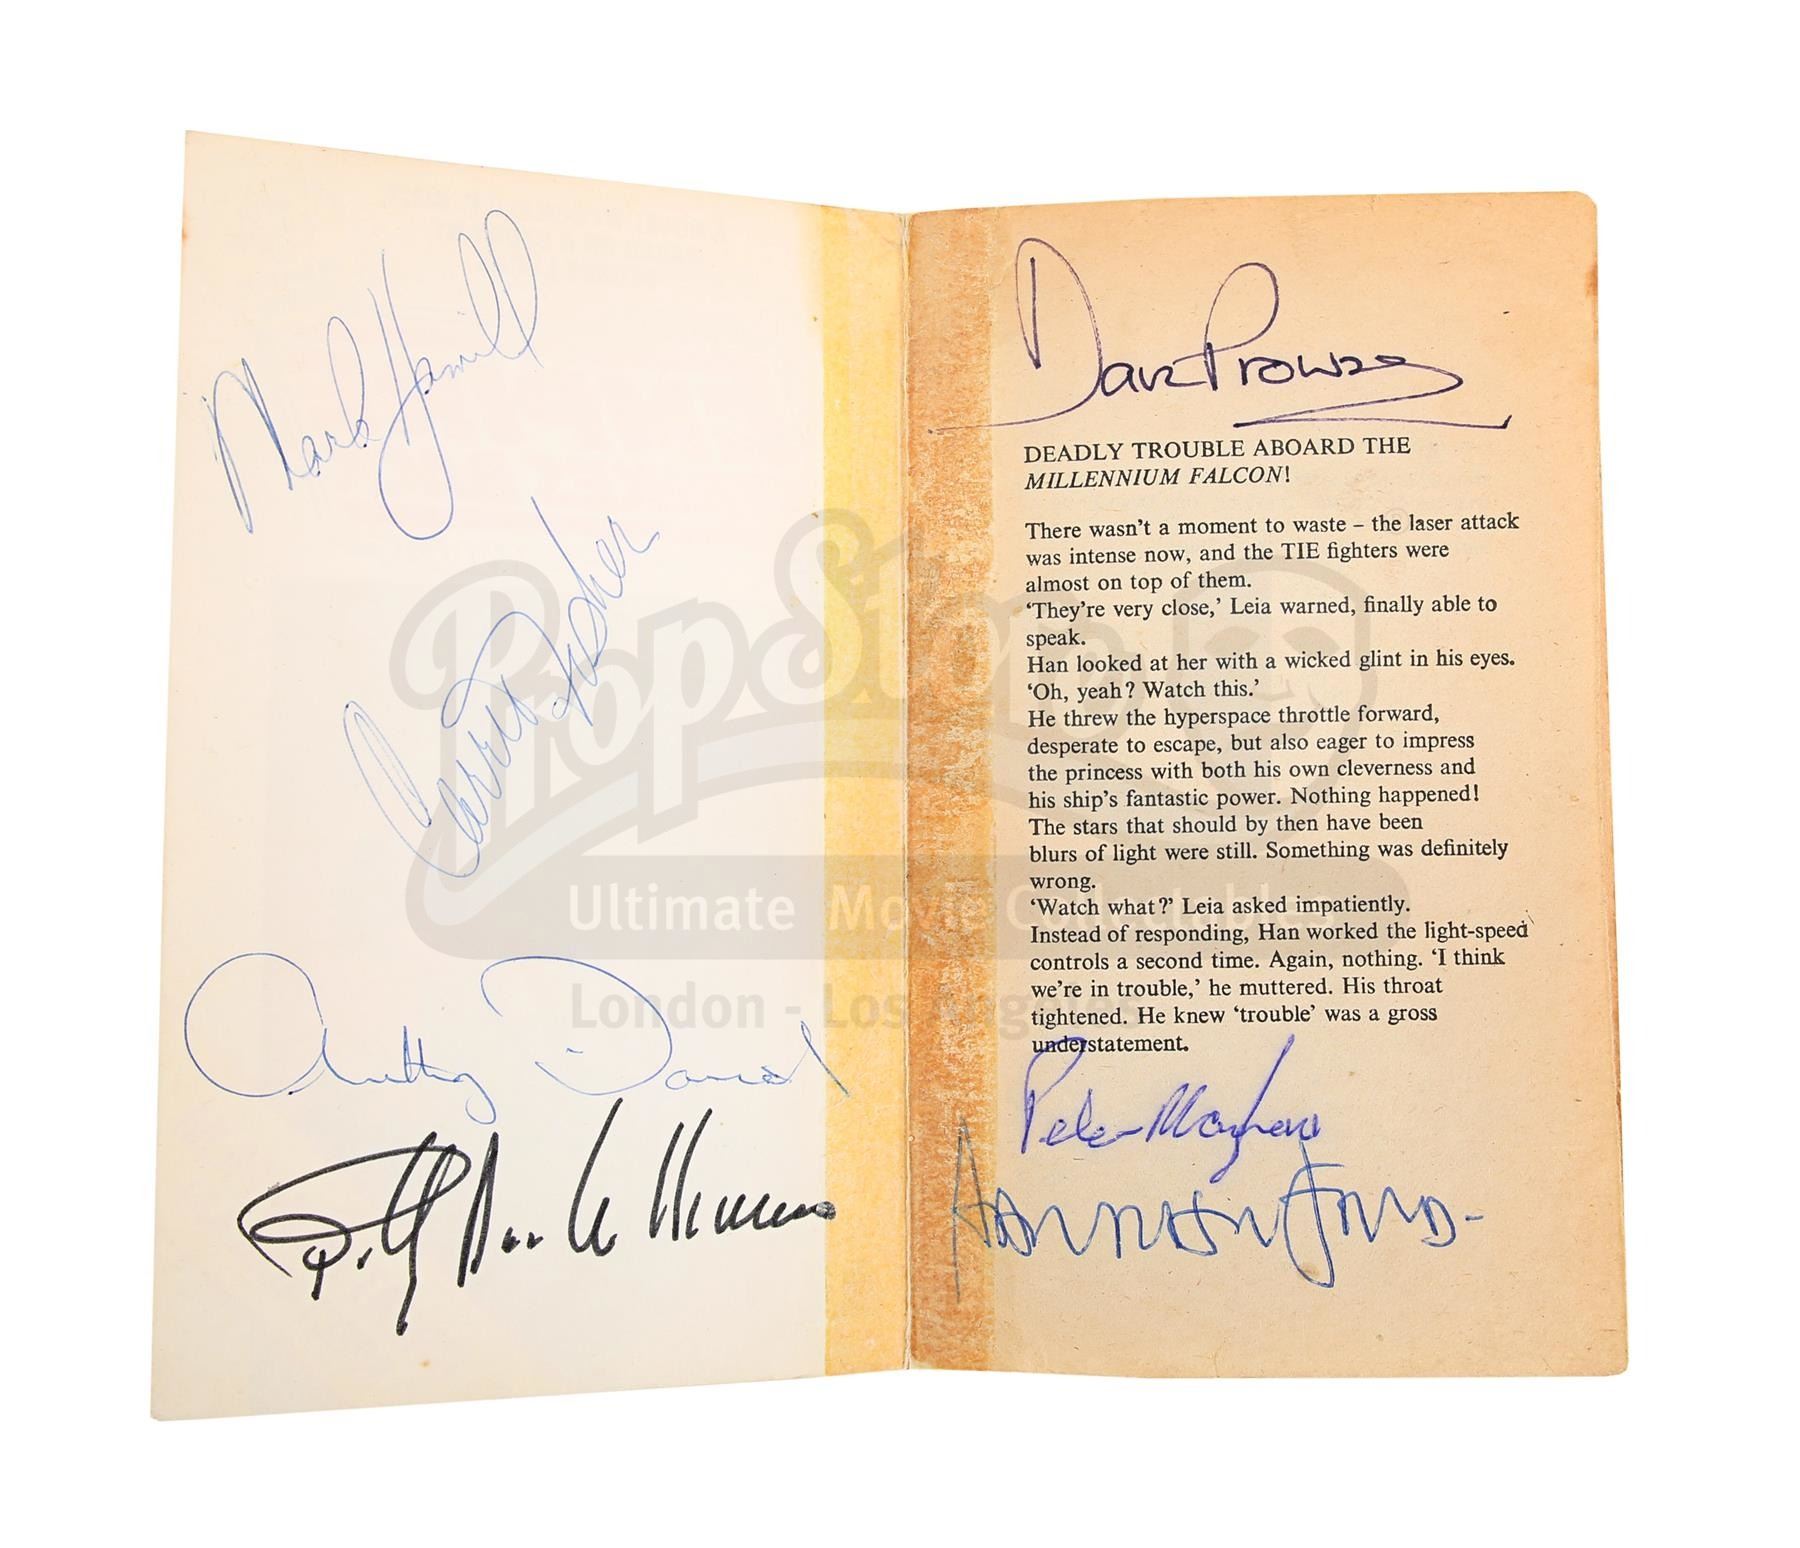 Mark Hamill
Carrie Fisher
Anthony Daniels
Billy Dee Williams
Dave Prowse
DEADLY TROUBLE ABOARD THE
MILLENNIUM FALCON!
There wasn't a moment to waste – the laser attack
was intense now, and the TIE fighters were
almost on top of them.
‘They're very close,’ Leia warned, finally able to
speak.
Han looked at her with a wicked glint in his eyes.
‘Oh, yeah? Watch this.’
He threw the hyperspace throttle forward,
desperate to escape, but also eager to impress
the princess with both his own cleverness and
his ship's fantastic power. Nothing happened!
The stars that should by then have been
blurs of light were still. Something was definitely
wrong.
‘Watch what?’ Leia asked impatiently.
Instead of responding, Han worked the light-speed
controls a second time. Again, nothing. ‘I think
we're in trouble,’ he muttered. His throat
tightened. He knew ‘trouble’ was a gross
understatement.
Peter Mayhew
Harrison Ford
PropStore
Ultimate Movie Collectables
London - Los Angeles